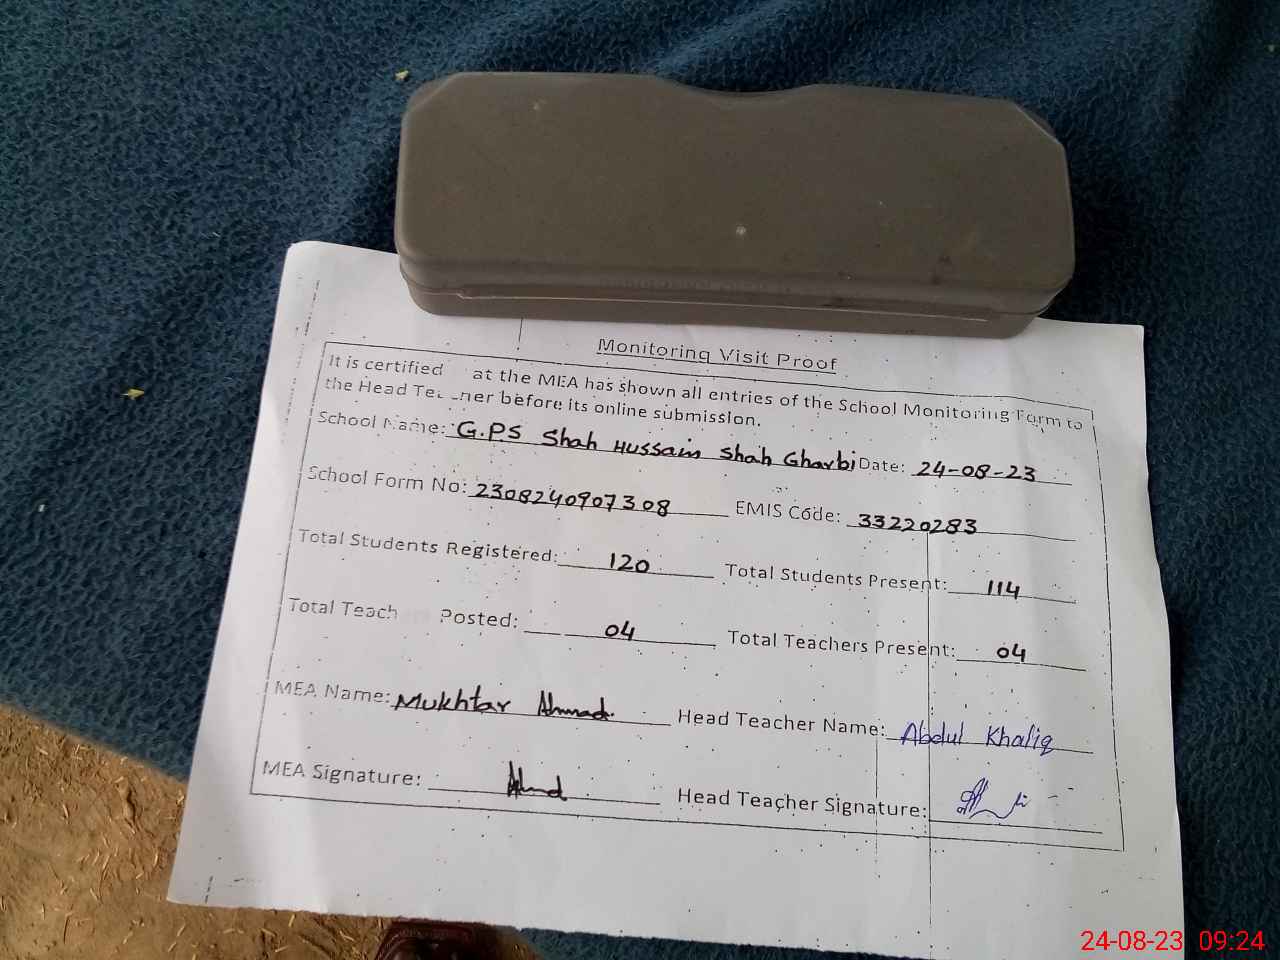 Monitoring Visit Proof
It is certified at the MEA has shown all entries of the School Monitoring Form to
the Head before its online submission.
School Name: G.PS Shah Hussain Shah Gharbi Date: 24-08-23
School Form No: 2308240907308 EMIS Code: 33220283
Total Students Registered: 120 Total Students Present: 114
Total Teach Posted: 04 Total Teachers Present: 04
MEA Name: Mukhtar Ahmad Head Teacher Name: Abdul Khaliq
MEA Signature: Head Teacher Signature:
24-08-23 09:24